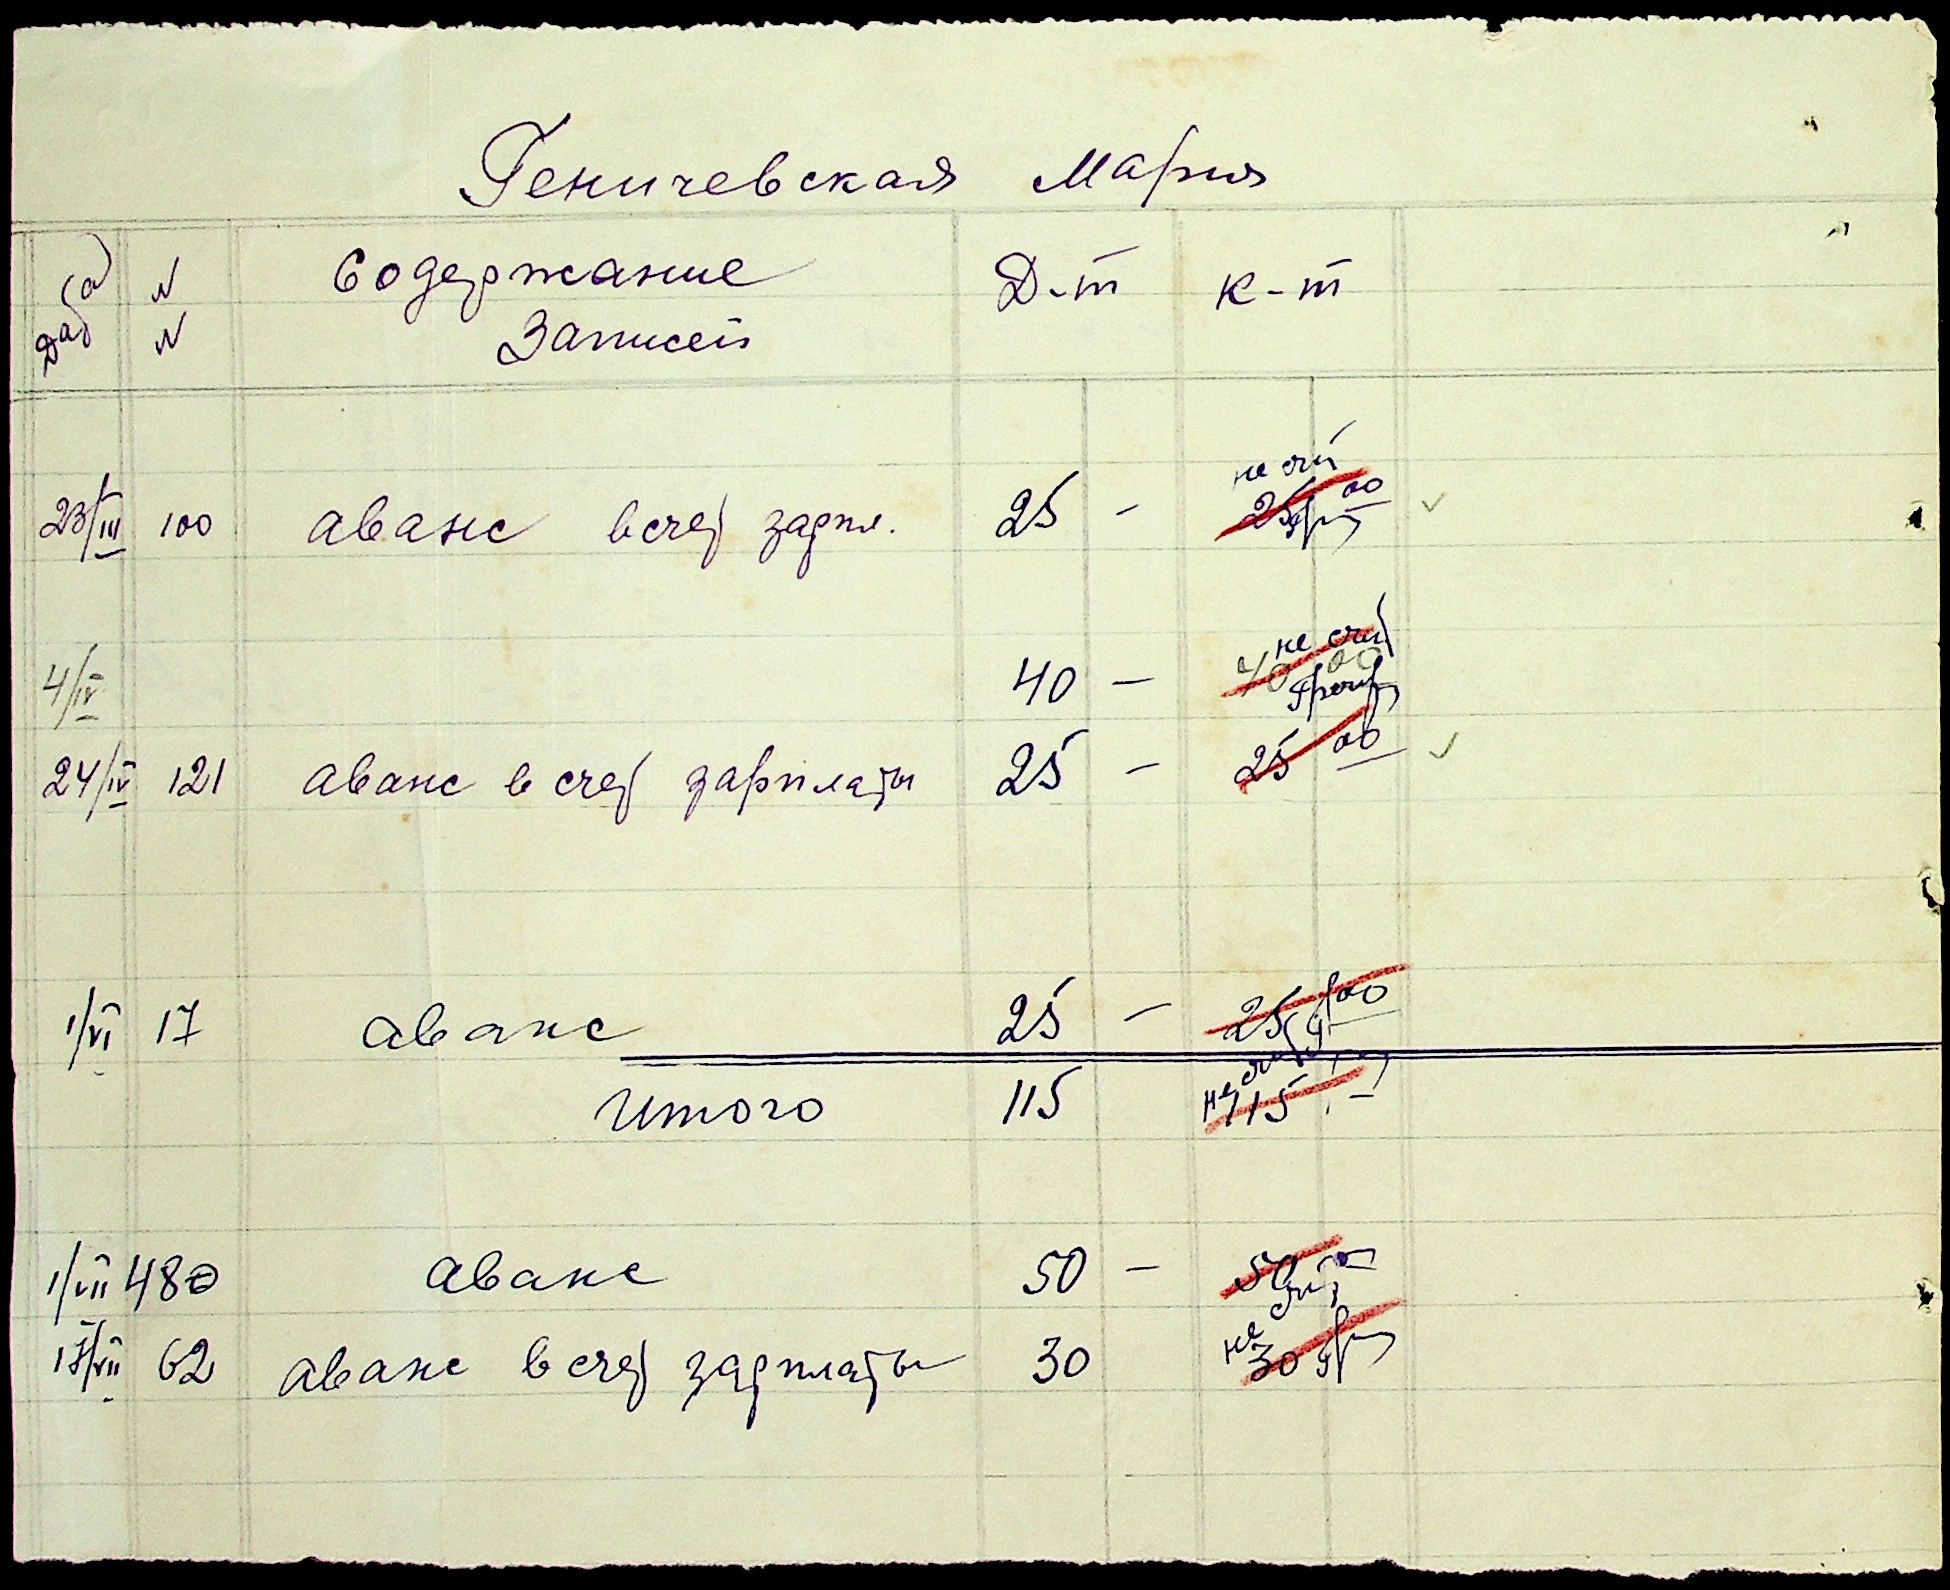 Геничевская Мария
Дата N N Содержание Записей Д-т К-т
не счит
23/III 100 аванс в счет зарпл. 25 – 25 00
не счит
4/IV 40 – 40 00
24/IV 121 аванс в счет зарплаты 25 – 25 00
1/VI 17 аванс 25 – 25 00
не счит
Итого 115 115 –
1/VII 480 аванс 50 – 50
не счит
15/VII 62 аванс в счет зарплаты 30 30